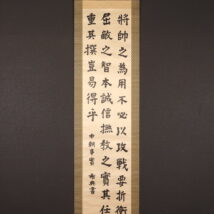 將帥之為用不必以攻戰要折衝
屈敵之智本誠信撫教之實其任
重其撰豈易得乎